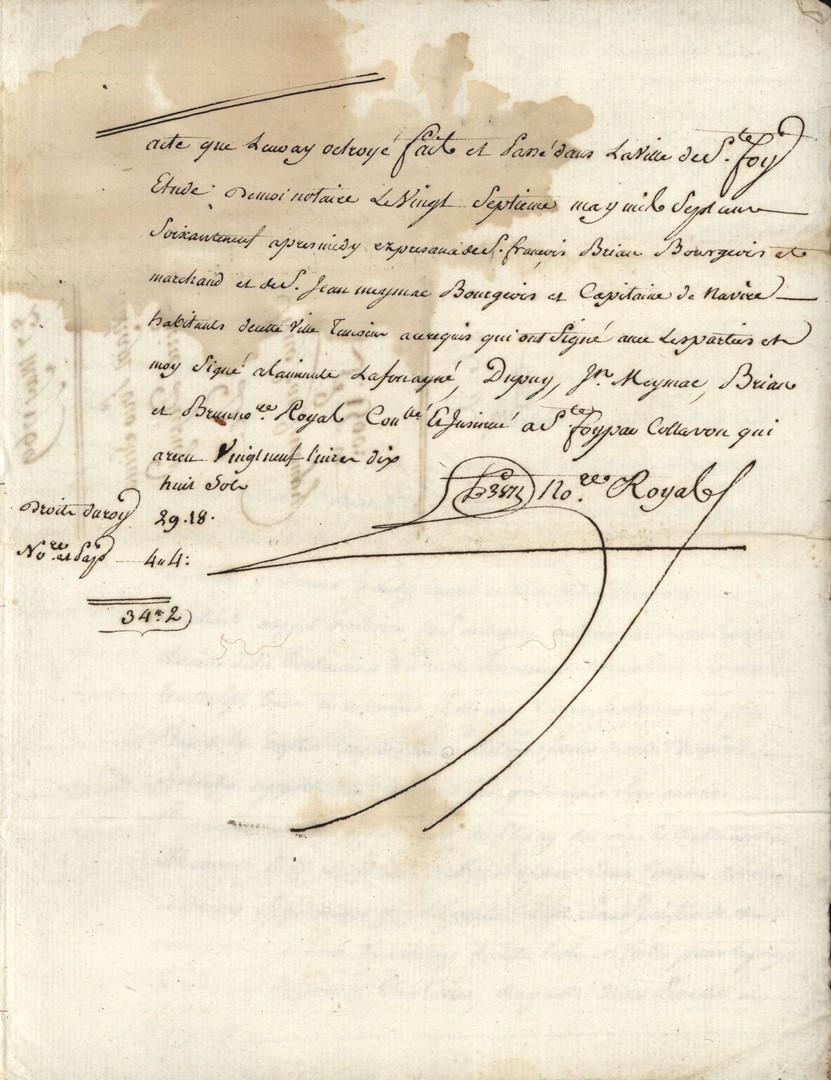 acte que Leuray octroyé fait et Passé dans La ville de Ste foy
Etude De moi notaire Le Vingt Septieme may mil Sept cens
Soixante neuf apres midy en presance de Sr. françois Brian Bourgeois et
marchand et de Sr. Jean meymac Bourgeois et Capitaine de Navire
habitants de cette ville Temoins a ce requis qui ont Signé avec Les parties et
moy Signé a la minute Lafonagné, Dupuy, Jn. Meymac, Brian
et Brun nore. Royal Conllé & Insinué a Ste foy par Collavon qui
a recu Vingt neuf livres dix
huit Sols
No.re Royal
Droits du roy 29.18.
No.re et Pap 4 4:
34 2